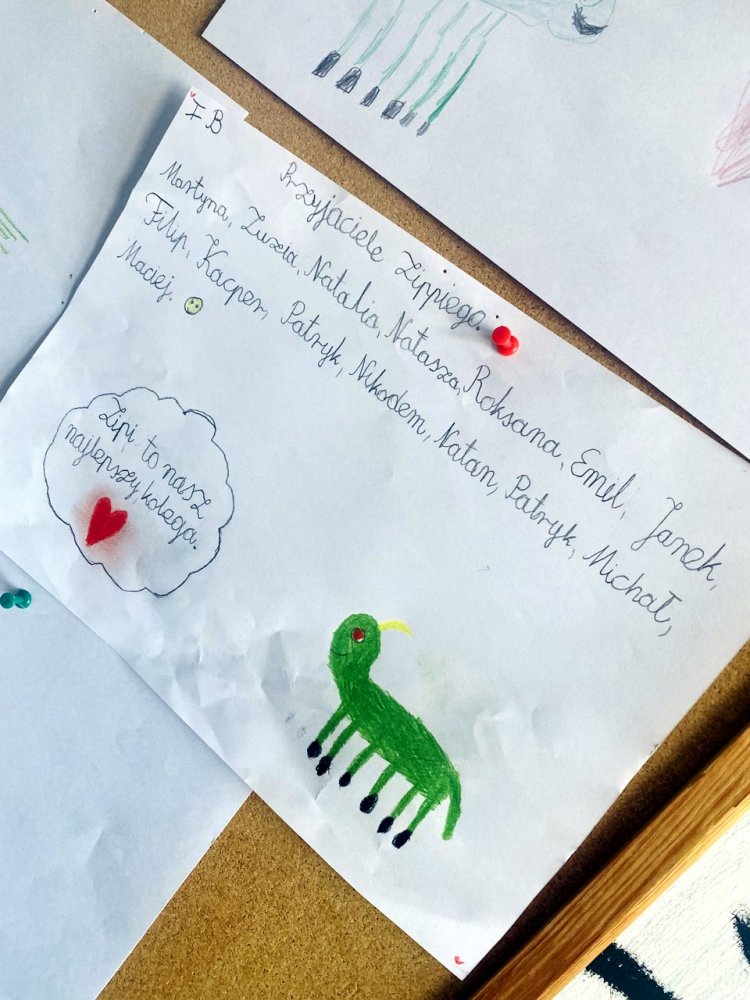 I B
Przyjaciele Zippiego.
Martyna, Zuzia, Natalia, Natasza, Roksana, Emil, Janek,
Filip, Kacper, Patryk, Nikodem, Natan, Patryk, Michał,
Maciej.
Zipi to nasz
najlepszy kolega.